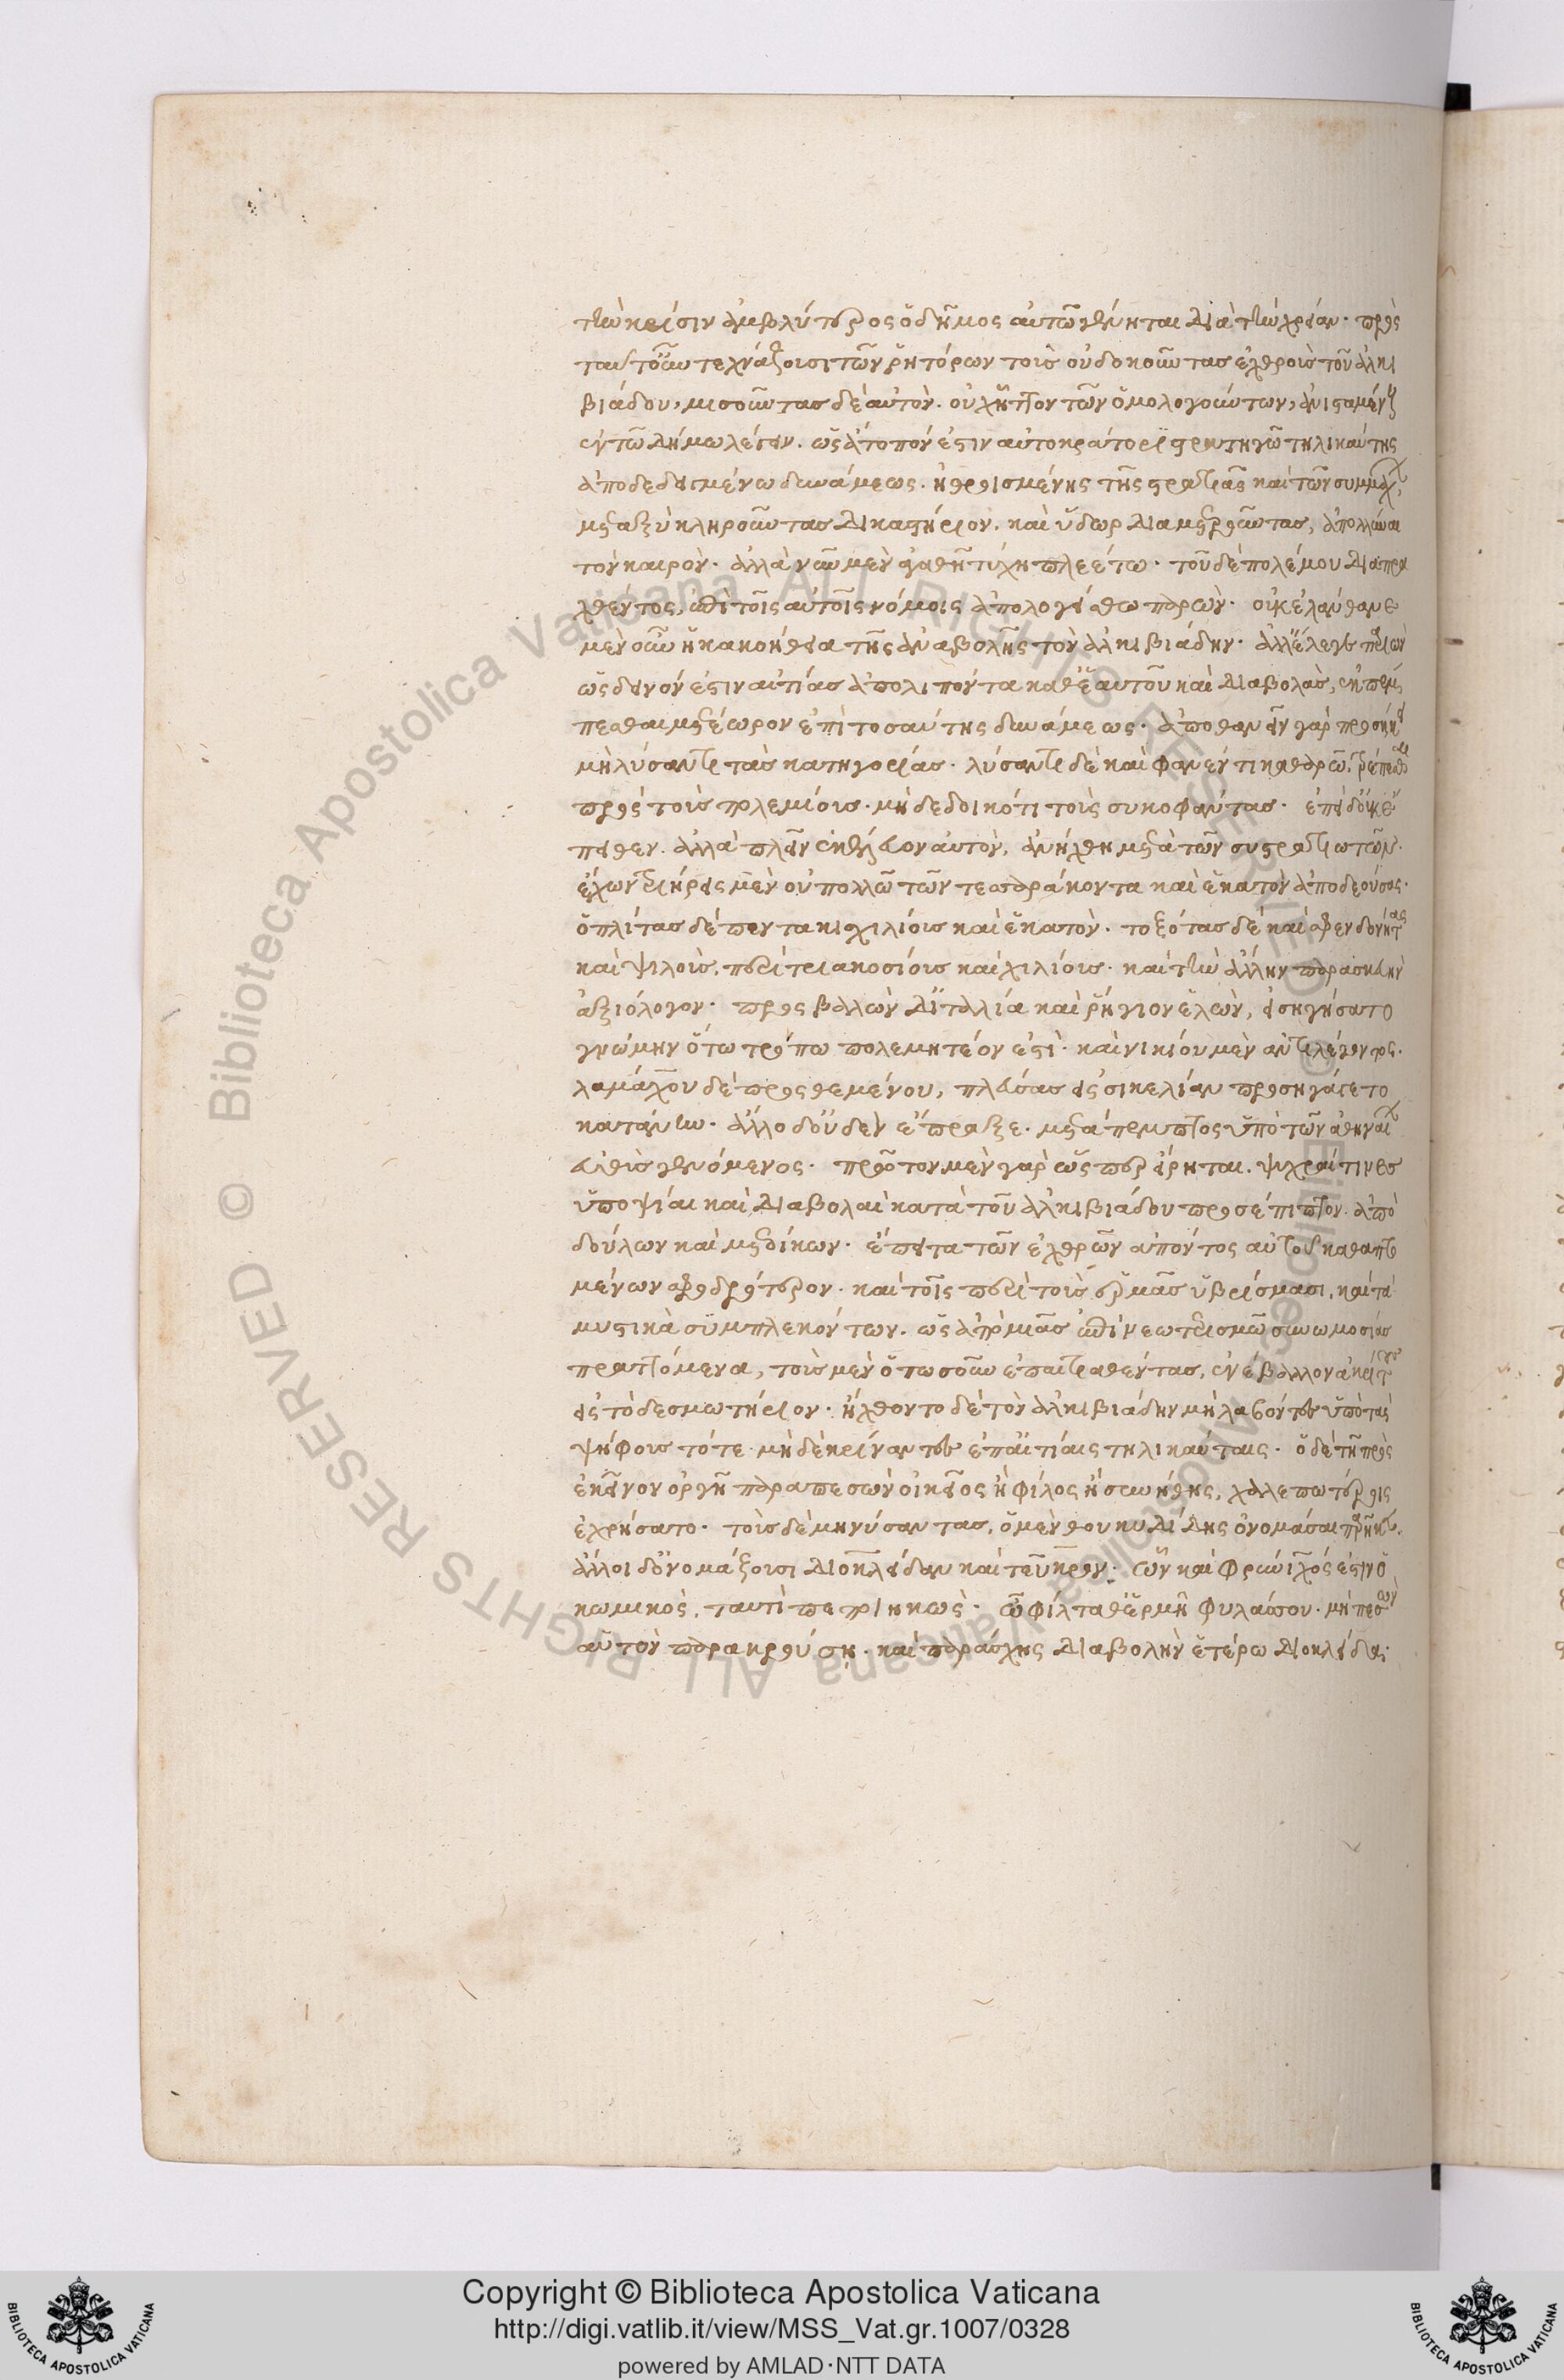 τὴν κρίσιν ἀμβλύτερος ὁ δῆμος αὐτῶ γένηται διὰ τὴν χρείαν. πρὸς
ταῦτ' οὖν τεχνάζουσι τῶν ῥητόρων τοὺς οὐ δοκοῦντας ἐχθροὺς τοῦ ἀλκι
βιάδου, μισοῦντας δὲ αὐτὸν οὐχ ἧττον τῶν ὁμολογούντων, ἀνισταμένους
ἐν τῶ δήμω λέγειν. ὡς ἄτοπόν ἐστιν αὐτοκράτορι στρατηγῶ τηλικαύτης
ἀποδεδειγμένω δυνάμεως. ἠθροισμένης τῆς στρατιᾶς καὶ τῶν συμμάχ
μεταξὺ κληροῦντας δικαστήριον. καὶ ὕδωρ διαμετροῦντας, ἀπολλύναι
τὸν καιρὸν. ἀλλὰ νῦν μὲν ἀγαθῆ τύχη πλεέτω. τοῦ δὲ πολέμου διαπρα
χθέντος, ἐπὶ τοῖς αὐτοῖς νόμοις ἀπολογείσθω παρών. οὐκ ἐλάνθανε
μὲν οὖν ἡ κακοήθεια τῆς ἀναβολῆς τὸν ἀλκιβιάδην. ἀλλ' ἔλεγε παριὼν
ὡς δεινόν ἐστιν αἰτίας ἀπολιπόντα καθ' ἑαυτοῦ καὶ διαβολὰς, ἐκπέμ
πεσθαι μετέωρον ἐπὶ τοσαύτης δυνάμεως. ἀποθανεῖν γὰρ προσήκει
μὴ λύσαντι τὰς κατηγορίας. λύσαντι δὲ καὶ φανέντι καθαρῶ, τρέπεσθαι
πρὸς τοὺς πολεμίους. μὴ δεδοικότι τοὺς συκοφάντας. ἐπεὶ δ' οὐκ ἔ
πειθεν. ἀλλὰ πλεῖν ἐκέλευον αὐτὸν, ἀνήχθη μετὰ τῶν συστρατιωτῶν.
ἔχων τριήρεις μὲν οὐ πολλῶ τῶν τεσσαράκοντα καὶ ἑκατὸν ἀποδεούσας.
ὁπλίτας δὲ πεντακισχιλίους καὶ ἑκατὸν. τοξότας δὲ καὶ σφενδονήτας
καὶ ψιλοὺς, περὶ τριακοσίους καὶ χιλίους. καὶ τὴν ἄλλην παρασκευὴν
ἀξιόλογον. προσβαλὼν δ' ἰταλία καὶ ῥήγιον ἑλὼν, εἰσηγήσατο
γνώμην ὅτω τρόπω πολεμητέον ἐστὶ. καὶ νικίου μὲν ἀντιλέγοντος.
λαμάχου δὲ προσθεμένου, πλεύσας εἰς σικελίαν προσηγάγετο
κατάνην. ἄλλο δ' οὐδὲν ἔπραξε. μετάπεμπτος ὑπὸ τῶν ἀθηναί
εὐθὺς γενόμενος. πρῶτον μὲν γὰρ ὥσπερ εἴρηται. ψυχραί τινες
ὑποψίαι καὶ διαβολαὶ κατὰ τοῦ ἀλκιβιάδου προσέπιπτον. ἀπὸ
δούλων καὶ μετοίκων. ἔπειτα τῶν ἐχθρῶν ἀπόντος αὐτοῦ καθαπτο
μένων σφοδρότερον. καὶ τοῖς περὶ τοὺς ἑρμᾶς ὑβρίσμασι, καὶ τὰ
μυστικὰ συμπλεκόντων. ὡς ἀπὸ μιᾶς ἐπὶ νεωτερισμῶ συνωμοσίας
πραττόμενα, τοὺς μὲν ὁπωσοῦν ἐπαιτιαθέντας, ἐνέβαλλον ἀκρίτους
εἰς τὸ δεσμωτήριον. ἤχθοντο δὲ τὸν ἀλκιβιάδην μὴ λαβόντες ὑπὸ τὰς
ψήφους τότε. μὴ δὲ κρίναντες ἐπ' αἰτίαις τηλικαύταις. ὁ δὲ τῆ πρὸς
ἐκεῖνον ὀργῆ παραπεσὼν οἰκεῖος ἢ φίλος ἢ συνήθης, χαλεπωτέροις
ἐχρήσατο. τοὺς δὲ μηνύσαντας, ὁ μὲν θουκυδίδης ὀνομάσαι παρῆκε.
ἄλλοι δ' ὀνομάζουσι διοκλείδαν καὶ τεῦκρον. ὧν καὶ φρύνιχός ἐστιν ὁ
κωμικὸς, ταυτὶ πεποιηκὼς. ὦ φίλταθ' ἑρμῆ φυλάσσου. μὴ πεσὼν
αὑτὸν παρακρούση. καὶ παράσχης διαβολὴν ἑτέρω διοκλείδα.
Copyright © Biblioteca Apostolica Vaticana
http://digi.vatlib.it/view/MSS_Vat.gr.1007/0328
powered by AMLAD·NTT DATA